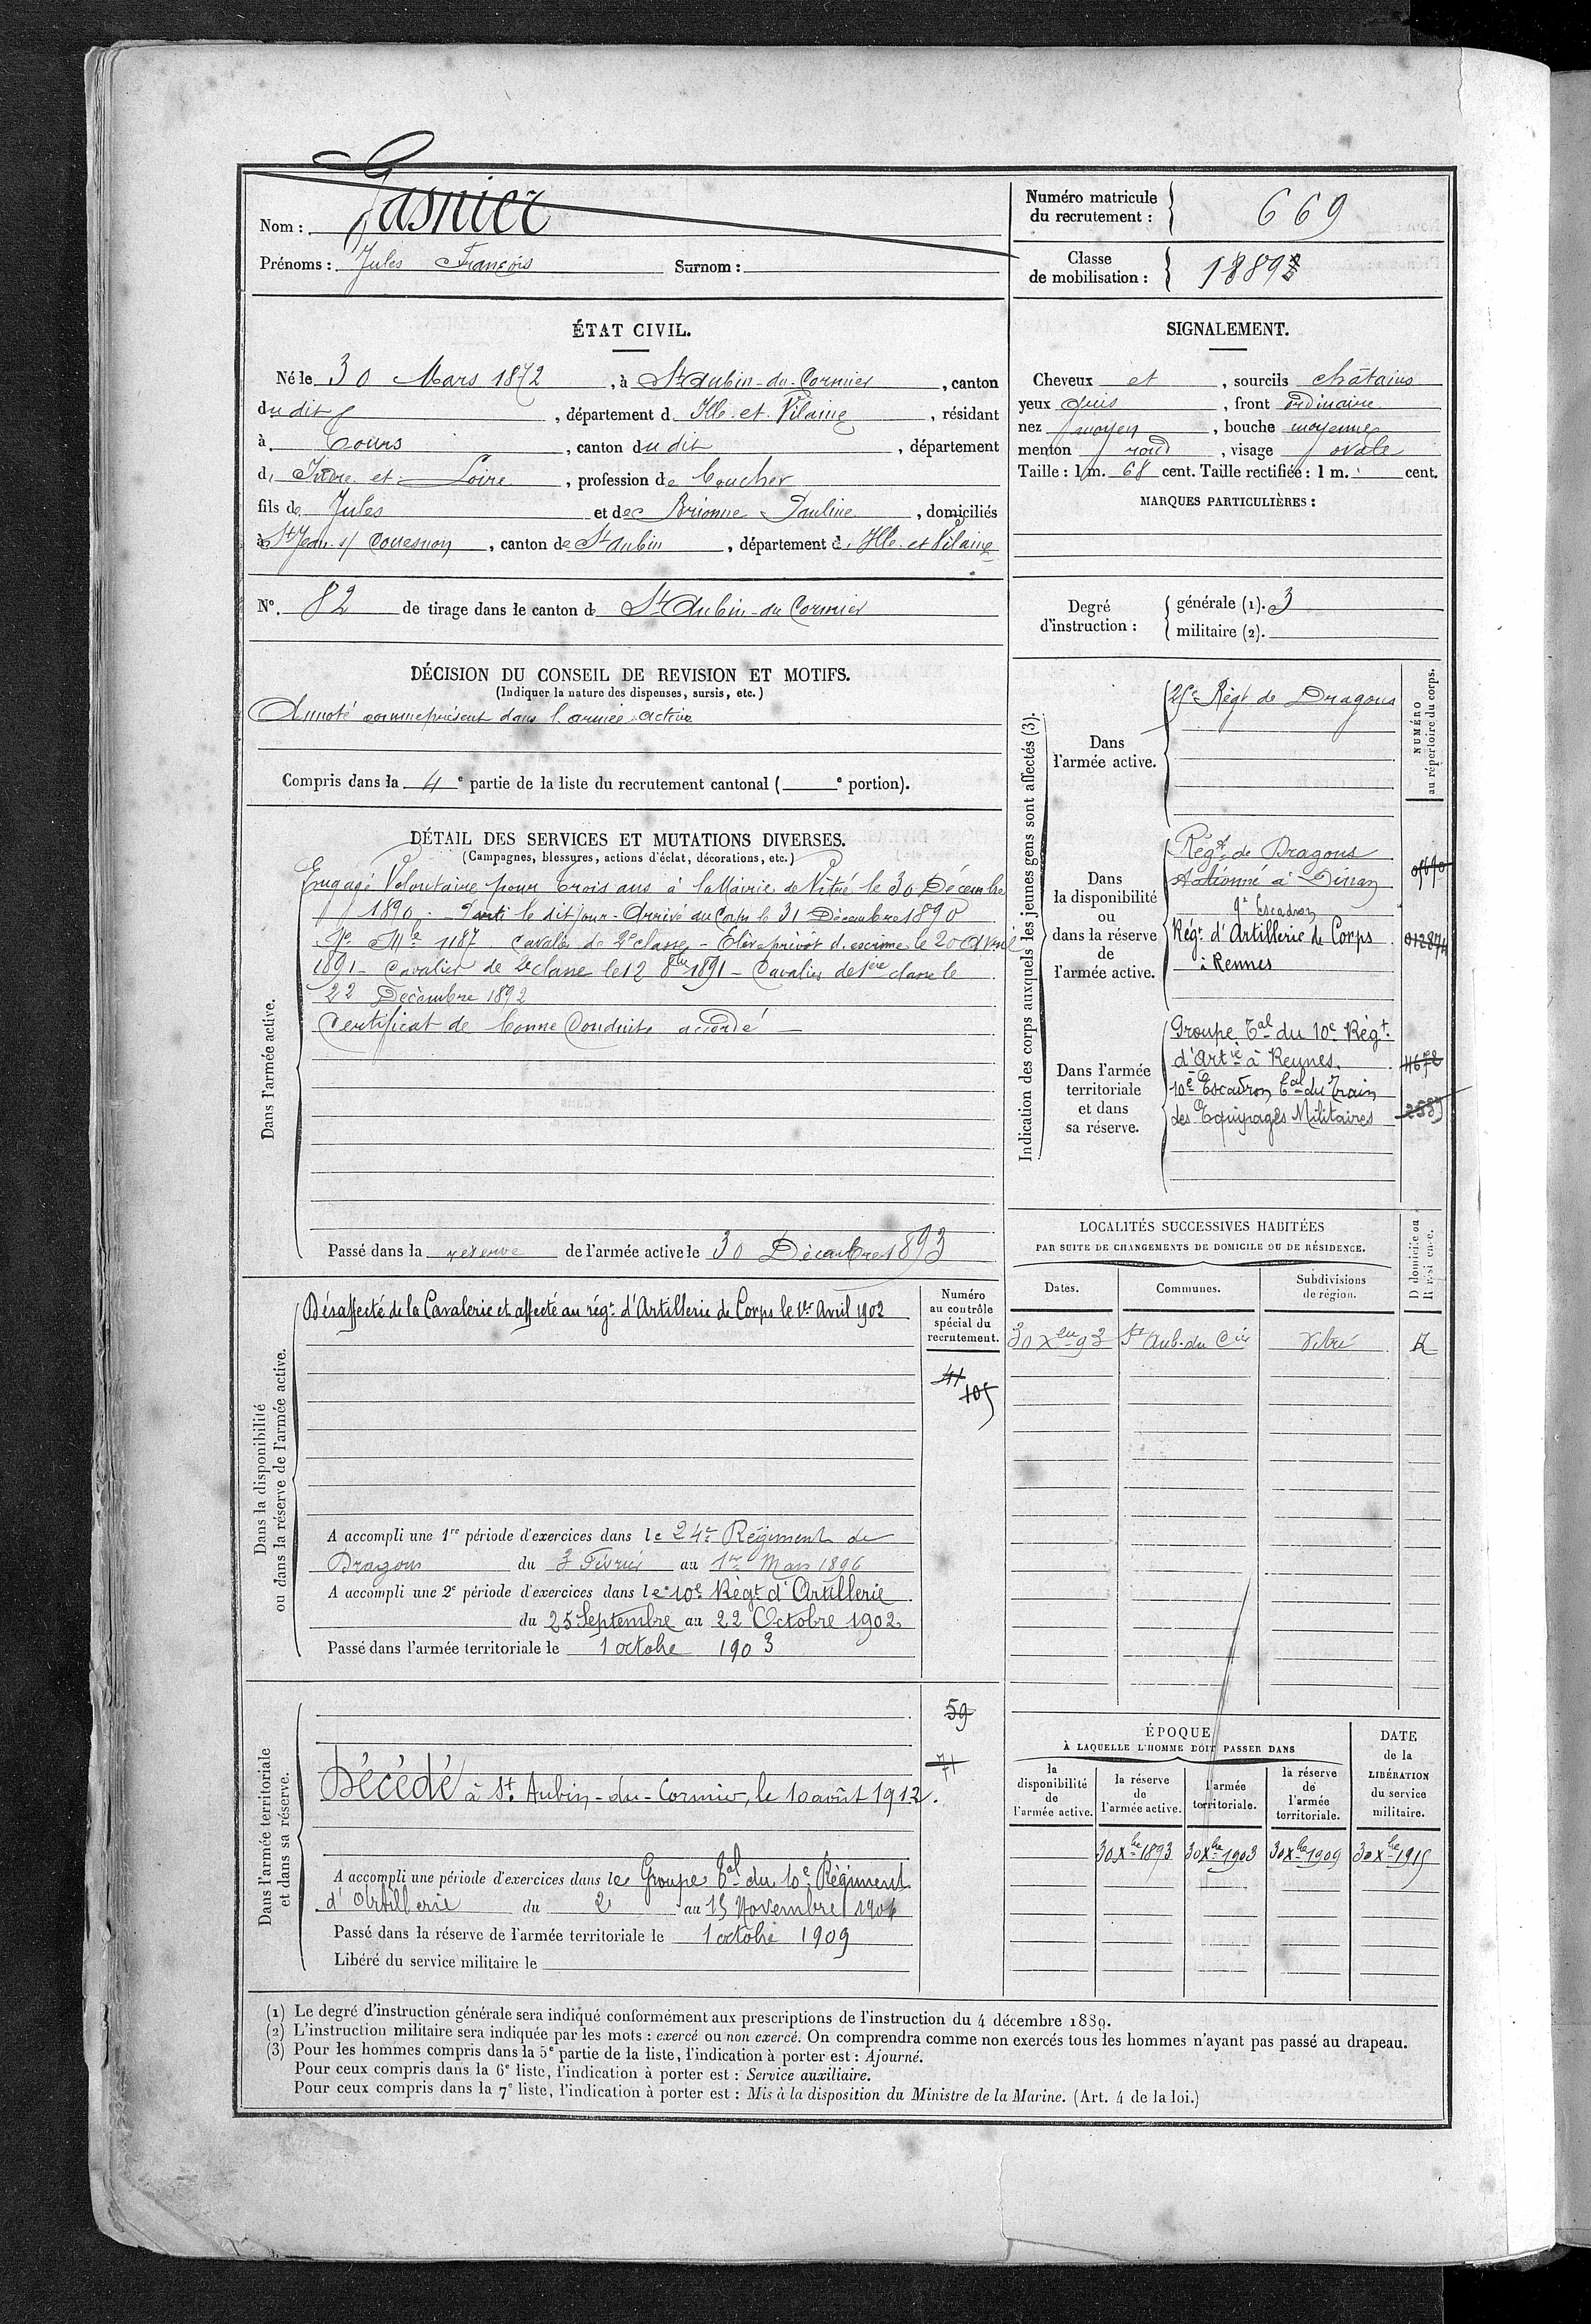 Nom : Gasnier
Prénoms : Jules François Surnom :
Numéro matricule du recrutement : 669
Classe de mobilisation : 1889
ÉTAT CIVIL.
Né le 30 Mars 1872, à St Aubin-du-Cormier, canton
du dit, département d. Ille-et-Vilaine, résidant
à Tours, canton du dit, département
d. Indre et Loire, profession de boucher
fils de Jules et de Brionne Pauline, domiciliés
à St Jean s/ Couesnon, canton de St Aubin, département d. Ille et Vilaine
N°. 82 de tirage dans le canton de St Aubin-du Cormier
SIGNALEMENT.
Cheveux et, sourcils châtains
yeux gris, front ordinaire
nez moyen, bouche moyenne
menton rond, visage ovale
Taille : 1 m. 68 cent. Taille rectifiée : 1 m. cent.
MARQUES PARTICULIÈRES :
Degré d'instruction :
générale (1). 3
militaire (2).
DÉCISION DU CONSEIL DE REVISION ET MOTIFS.
(Indiquer la nature des dispenses, sursis, etc.)
Annoté comme présent dans l'armée active
Compris dans la 4e partie de la liste du recrutement cantonal ( e portion).
DÉTAIL DES SERVICES ET MUTATIONS DIVERSES.
(Campagnes, blessures, actions d'éclat, décorations, etc.)
Dans l'armée active.
Engagé Volontaire pour trois ans à la Mairie de Vitré le 30 Décembre
1890. Parti le dit jour - Arrivé au Corps le 31 Décembre 1890
No Mle 1187. Cavalier de 2e classe - Elève prévôt d'escrime le 20 Avril
1891 - Cavalier de 2e classe le 12 8bre 1891 - Cavalier de 1ère classe le
22 Décembre 1892
Certificat de bonne Conduite accordé
Passé dans la réserve de l'armée active le 30 Décembre 1893
Indication des corps auxquels les jeunes gens sont affectés (3).
NUMÉRO au répertoire du corps.
Dans l'armée active.
Régt de Dragons
Dans la disponibilité ou dans la réserve de l'armée active.
Régt de Dragons
stationné à Dinan
Escadron
Régt d'Artillerie de Corps 012874
à Rennes
Dans l'armée territoriale et dans sa réserve.
Groupe Tal du 10e Régt.
d'Artie à Rennes.
10e Escadron Tal du Train
des Equipages Militaires
LOCALITÉS SUCCESSIVES HABITÉES
PAR SUITE DE CHANGEMENTS DE DOMICILE OU DE RÉSIDENCE.
Dates. Communes. Subdivisions de région. D domicile ou R résidence.
30 Xbre 93 St Aub. du Cier Vitré R
Dans la disponibilité ou dans la réserve de l'armée active.
Numéro au contrôle spécial du recrutement.
Désaffecté de la Cavalerie et affecté au régt d'Artillerie de Corps le 1er Avril 1902
41
105
A accompli une 1re période d'exercices dans le 24e Régiment de
Dragons du 3 Février au 1er Mars 1896
A accompli une 2e période d'exercices dans le 10e Régt d'Artillerie
du 25 Septembre au 22 Octobre 1902
Passé dans l'armée territoriale le 1 octobre 1903
Dans l'armée territoriale et dans sa réserve.
59
71
Décédé à St. Aubin-du-Cormier, le 10 août 1912.
A accompli une période d'exercices dans le Groupe Tal du 10e Régiment
d'Artillerie du 2 au 15 Novembre 1906
Passé dans la réserve de l'armée territoriale le 1 octobre 1909
Libéré du service militaire le
ÉPOQUE
À LAQUELLE L'HOMME DOIT PASSER DANS
la disponibilité de l'armée active.
la réserve de l'armée active.
l'armée territoriale.
la réserve de l'armée territoriale.
DATE de la LIBÉRATION du service militaire.
30 Xbre 1893 30 Xbre 1903 30 Xbre 1909 30 Xbre 1915
(1) Le degré d'instruction générale sera indiqué conformément aux prescriptions de l'instruction du 4 décembre 1889.
(2) L'instruction militaire sera indiquée par les mots : exercé ou non exercé. On comprendra comme non exercés tous les hommes n'ayant pas passé au drapeau.
(3) Pour les hommes compris dans la 5e partie de la liste, l'indication à porter est : Ajourné.
Pour ceux compris dans la 6e liste, l'indication à porter est : Service auxiliaire.
Pour ceux compris dans la 7e liste, l'indication à porter est : Mis à la disposition du Ministre de la Marine. (Art. 4 de la loi.)